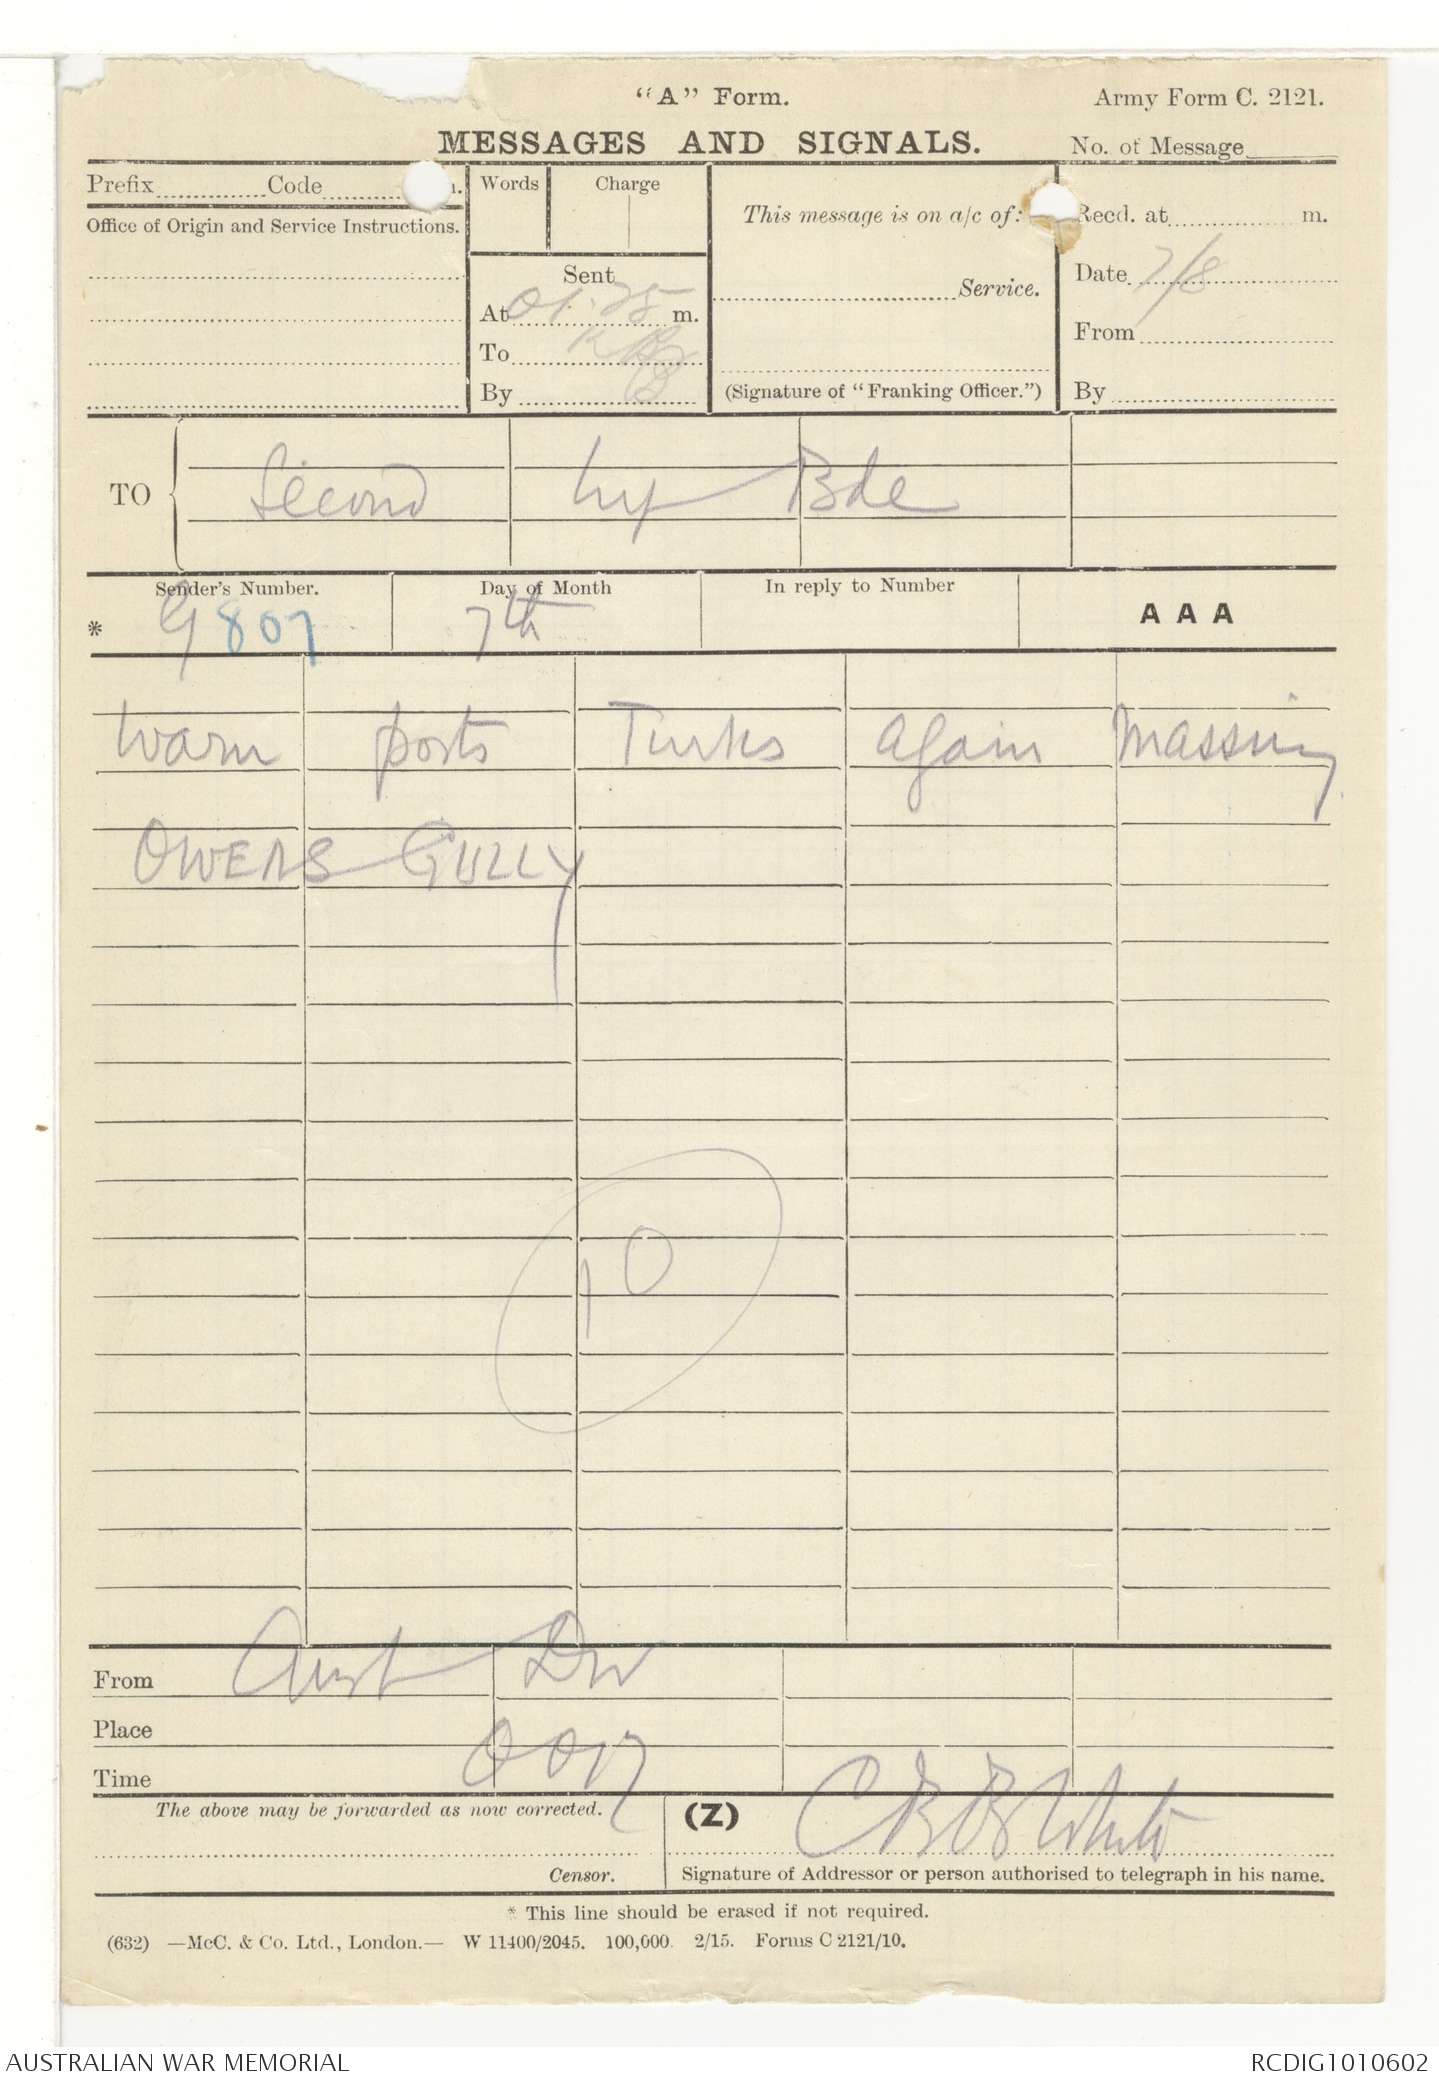 "A" Form.
Army Form C. 2121.
MESSAGES AND SIGNALS.
No. of Message
Prefix Code m.
Words Charge
This message is on a/c of:
Recd. at m.
Office of Origin and Service Instructions.
Sent
At 01.25 m.
Service.
Date 7/8
To
From
By
(Signature of "Franking Officer.")
By
TO Second Inf Bde
Sender's Number.
Day of Month
In reply to Number
AAA
* G 807 7th
Warn posts Turks again massing
OWENS GULLY
10
From Aust Div
Place
Time 0017
The above may be forwarded as now corrected.
(Z) CBB White
Censor.
Signature of Addressor or person authorised to telegraph in his name.
* This line should be erased if not required.
(632) —McC. & Co. Ltd., London.— W 11400/2045. 100,000. 2/15. Forms C 2121/10.
AUSTRALIAN WAR MEMORIAL
RCDIG1010602